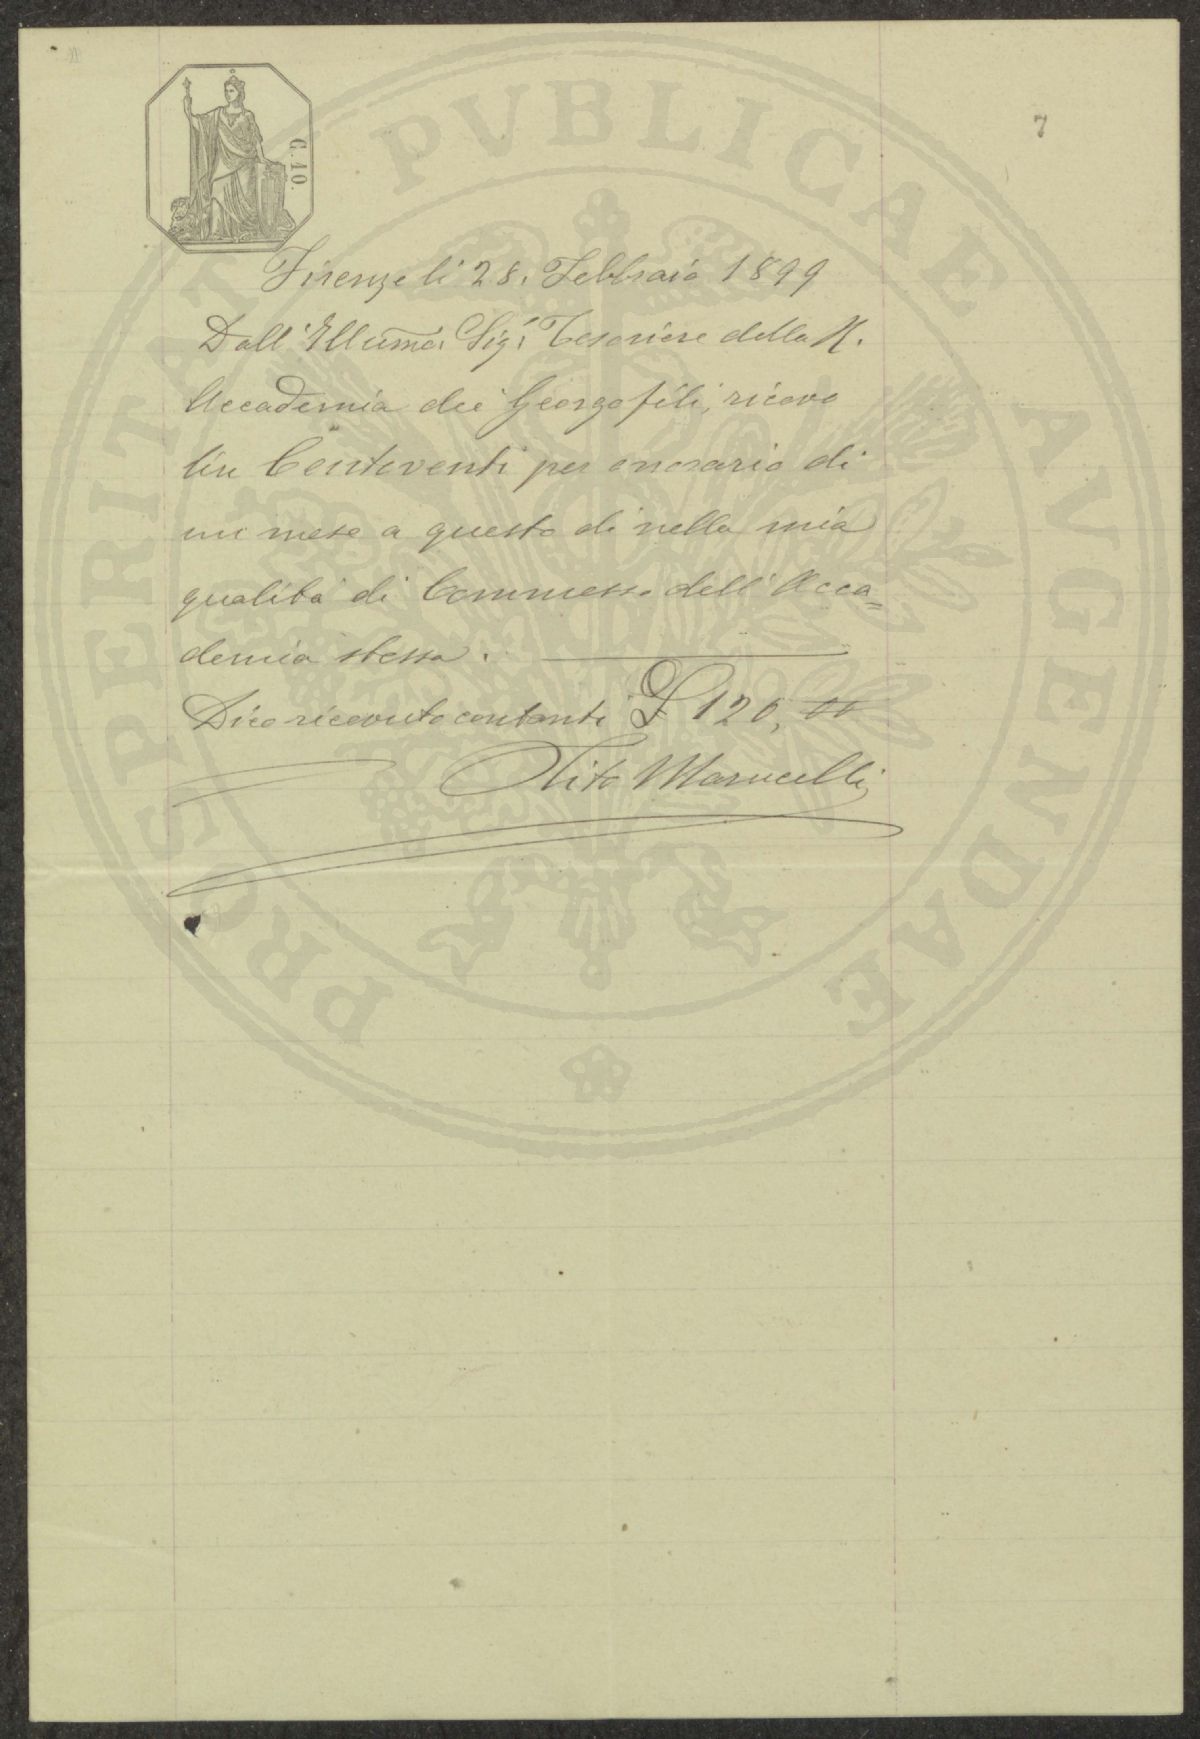 7
C. 10.
PROSPERITATI PVBLICAE AVGENDAE
Firenze li 28. Febbraio 1899
Dall'Illumo. Sigr. Tesoriere della R.
Accademia dei Georgofili, ricevo
Lire Centoventi per onorario di
un mese a questo dì nella mia
qualità di Commesso dell'Acca=
demia stessa.
Dico ricevuto contanti £ 120,00
Tito Marucelli